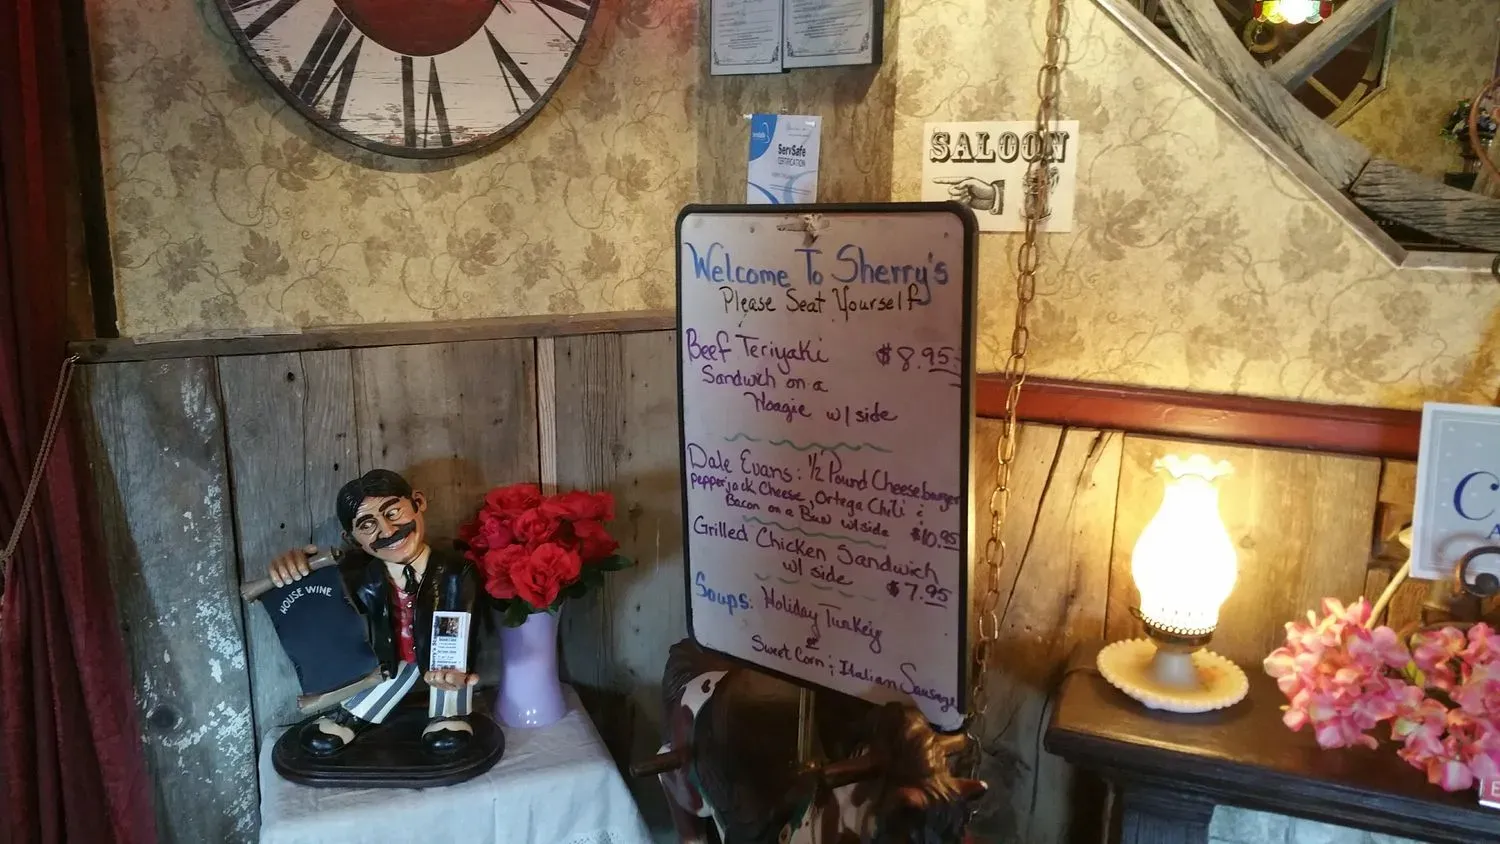 ServSafe
CERTIFICATION
SALOON
Welcome To Sherry's
Please Seat Yourself
Beef Teriyaki $8.95
Sandwich on a
Hoagie w/ side
Dale Evans: 1/2 Pound Cheeseburger
pepperjack Cheese, Ortega Chili &
Bacon on a Bun w/side $10.95
Grilled Chicken Sandwich
w/ side $7.95
Soups: Holiday Turkey
or
Sweet Corn & Italian Sausage
HOUSE WINE
C